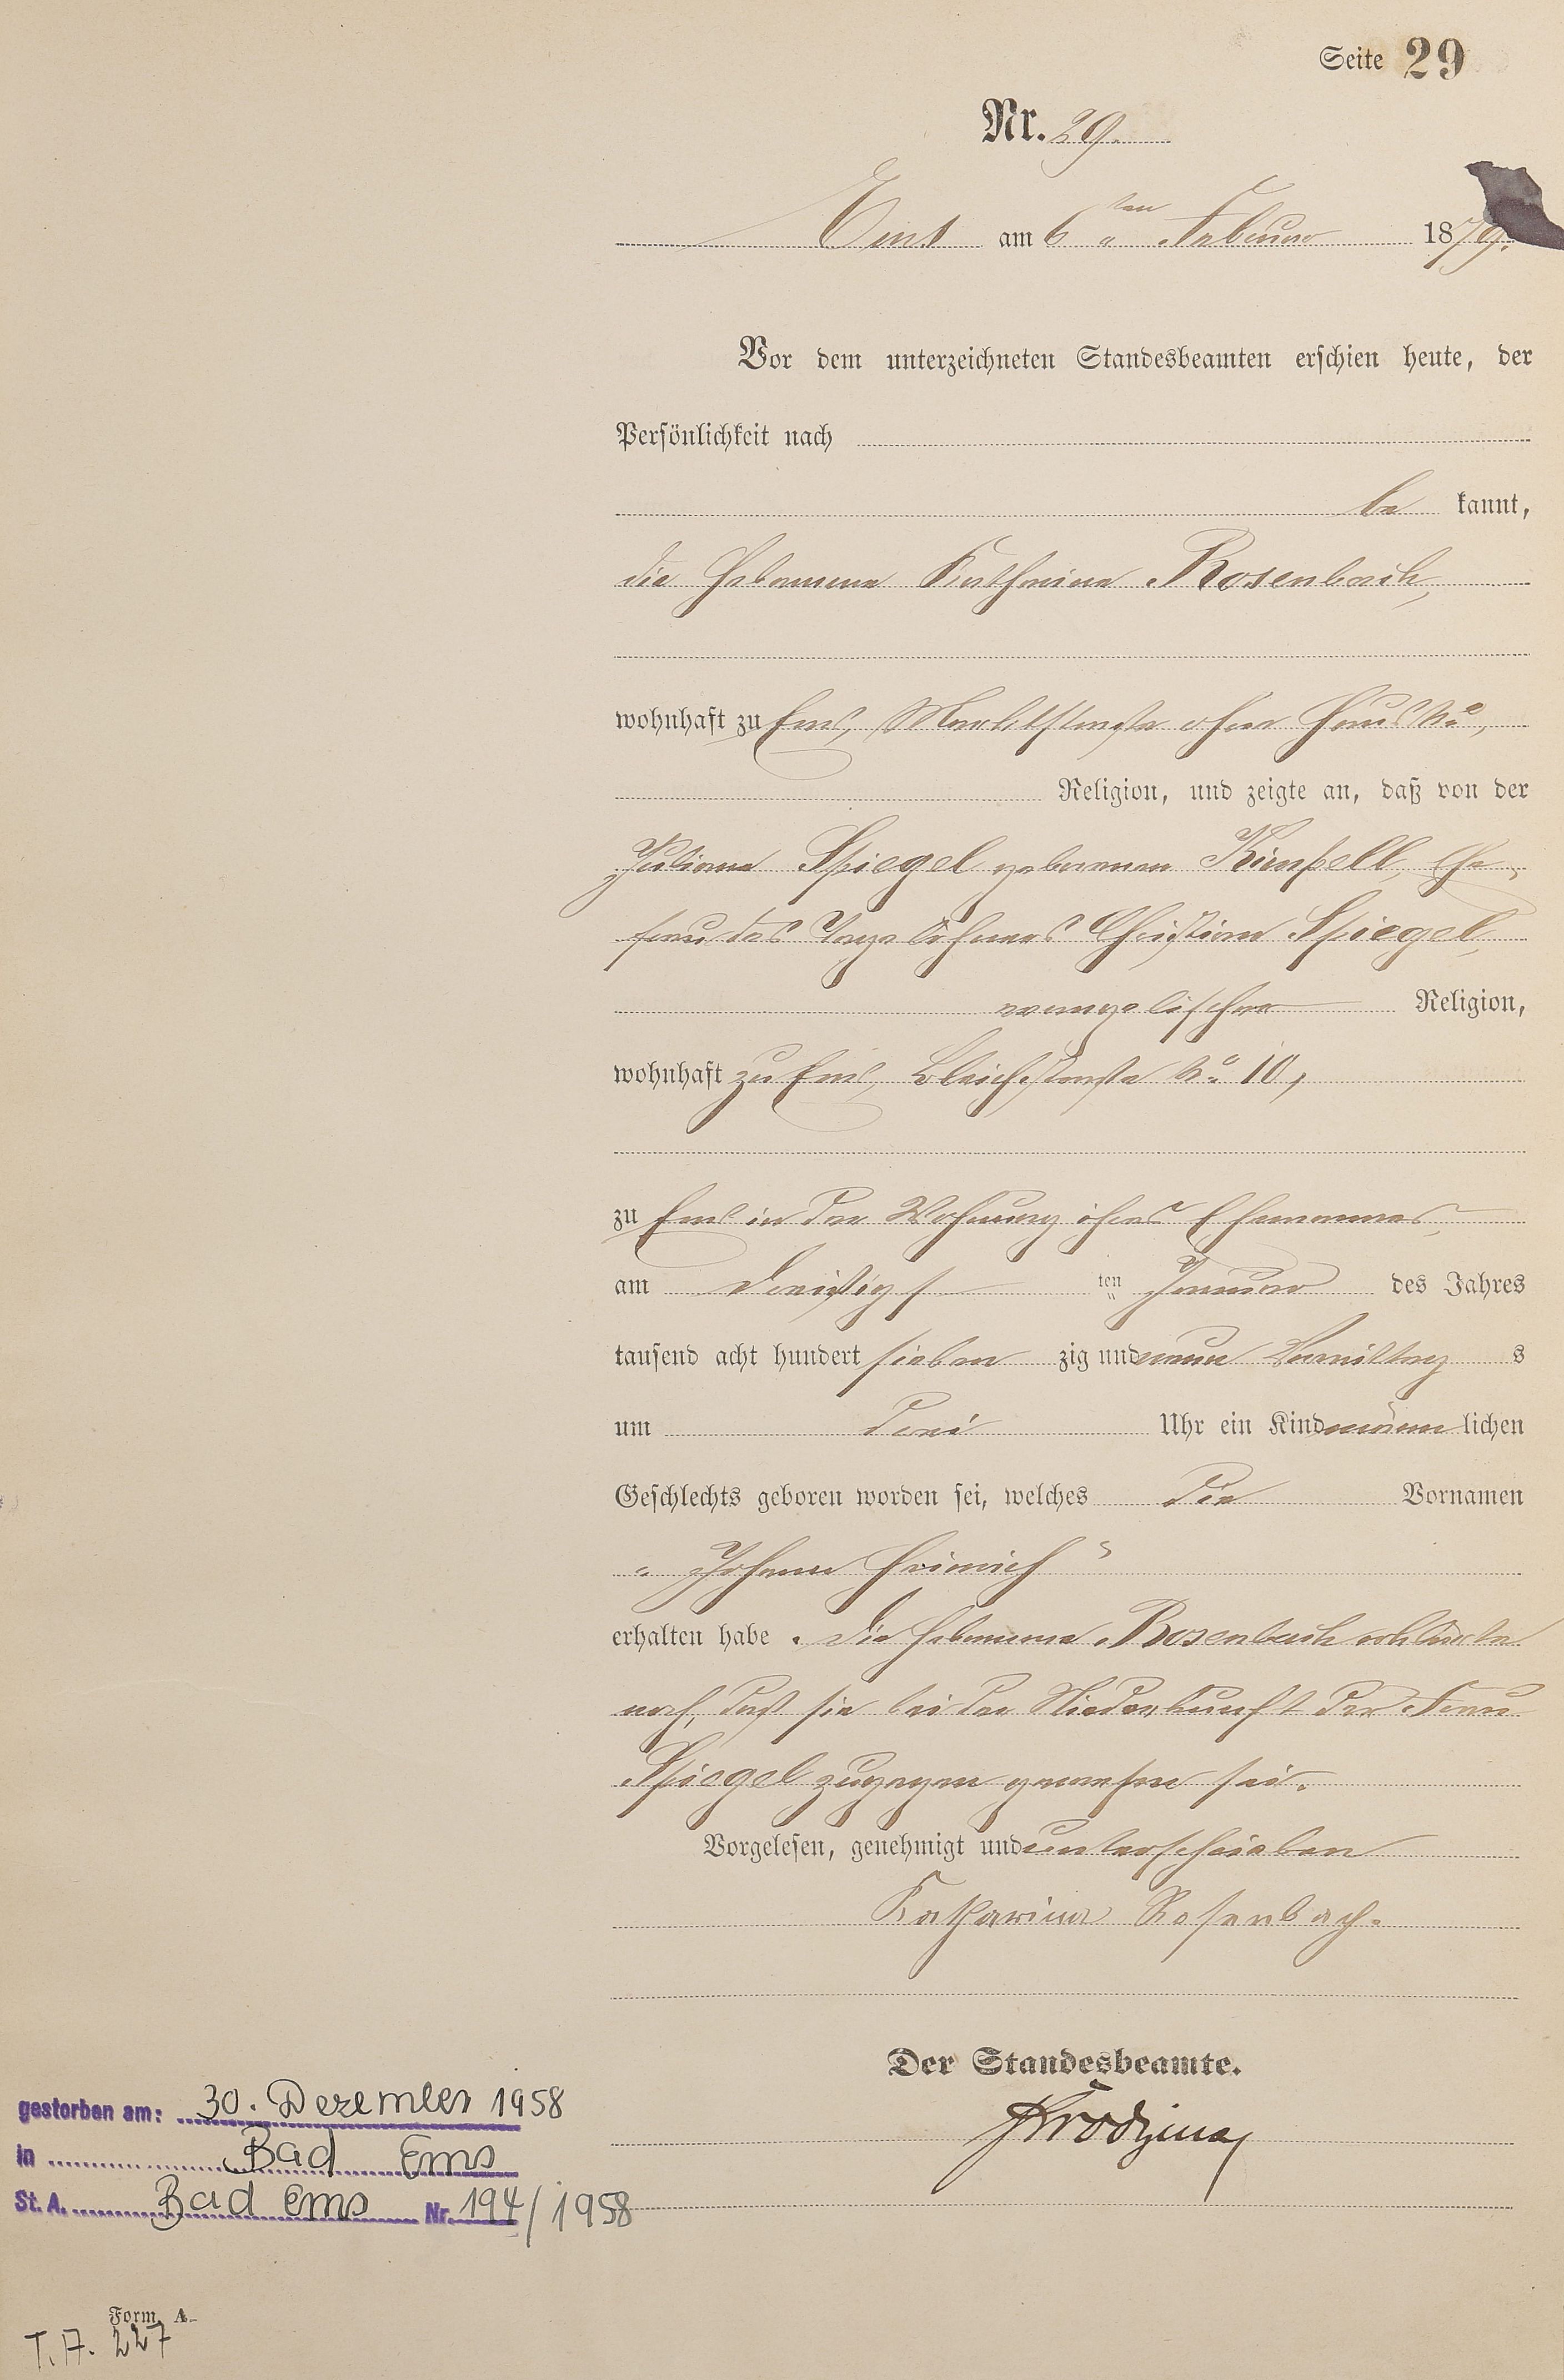 Seite 29
Nr. 29.
Ems am 6 ten Februar 1879.
Vor dem unterzeichneten Standesbeamten erschien heute, der
Persönlichkeit nach
be kannt,
die Hebamme Katharina Rosenbach,
wohnhaft zu Ems, Marktstraße ohne Haus No,
Religion, und zeigte an, daß von der
Juliana Spiegel geborenen Ehe-
frau des Tagelöhners Christian Spiegel,
evangelischer Religion,
wohnhaft zu Ems, Bleichstraße No 10,
zu Ems in der Wohnung ihres Ehemannes,
am dreißigs ten Januar des Jahres
tausend acht hundert sieben zig und neun Vormittag s
um drei Uhr ein Kind männ lichen
Geschlechts geboren worden sei, welches die Vornamen
„Johann Heinrich“
erhalten habe. Die Hebamme Rosenbach erklärte
noch, daß sie bei der Niederkunft der Frau
Spiegel zugegen gewesen sei.
Vorgelesen, genehmigt und unterschrieben
Katharina Rosenbach.
Der Standesbeamte.
gestorben am: 30. Dezember 1958
in Bad Ems
St. A. Bad Ems Nr. 194/1958
Form. A.
T.A. 227